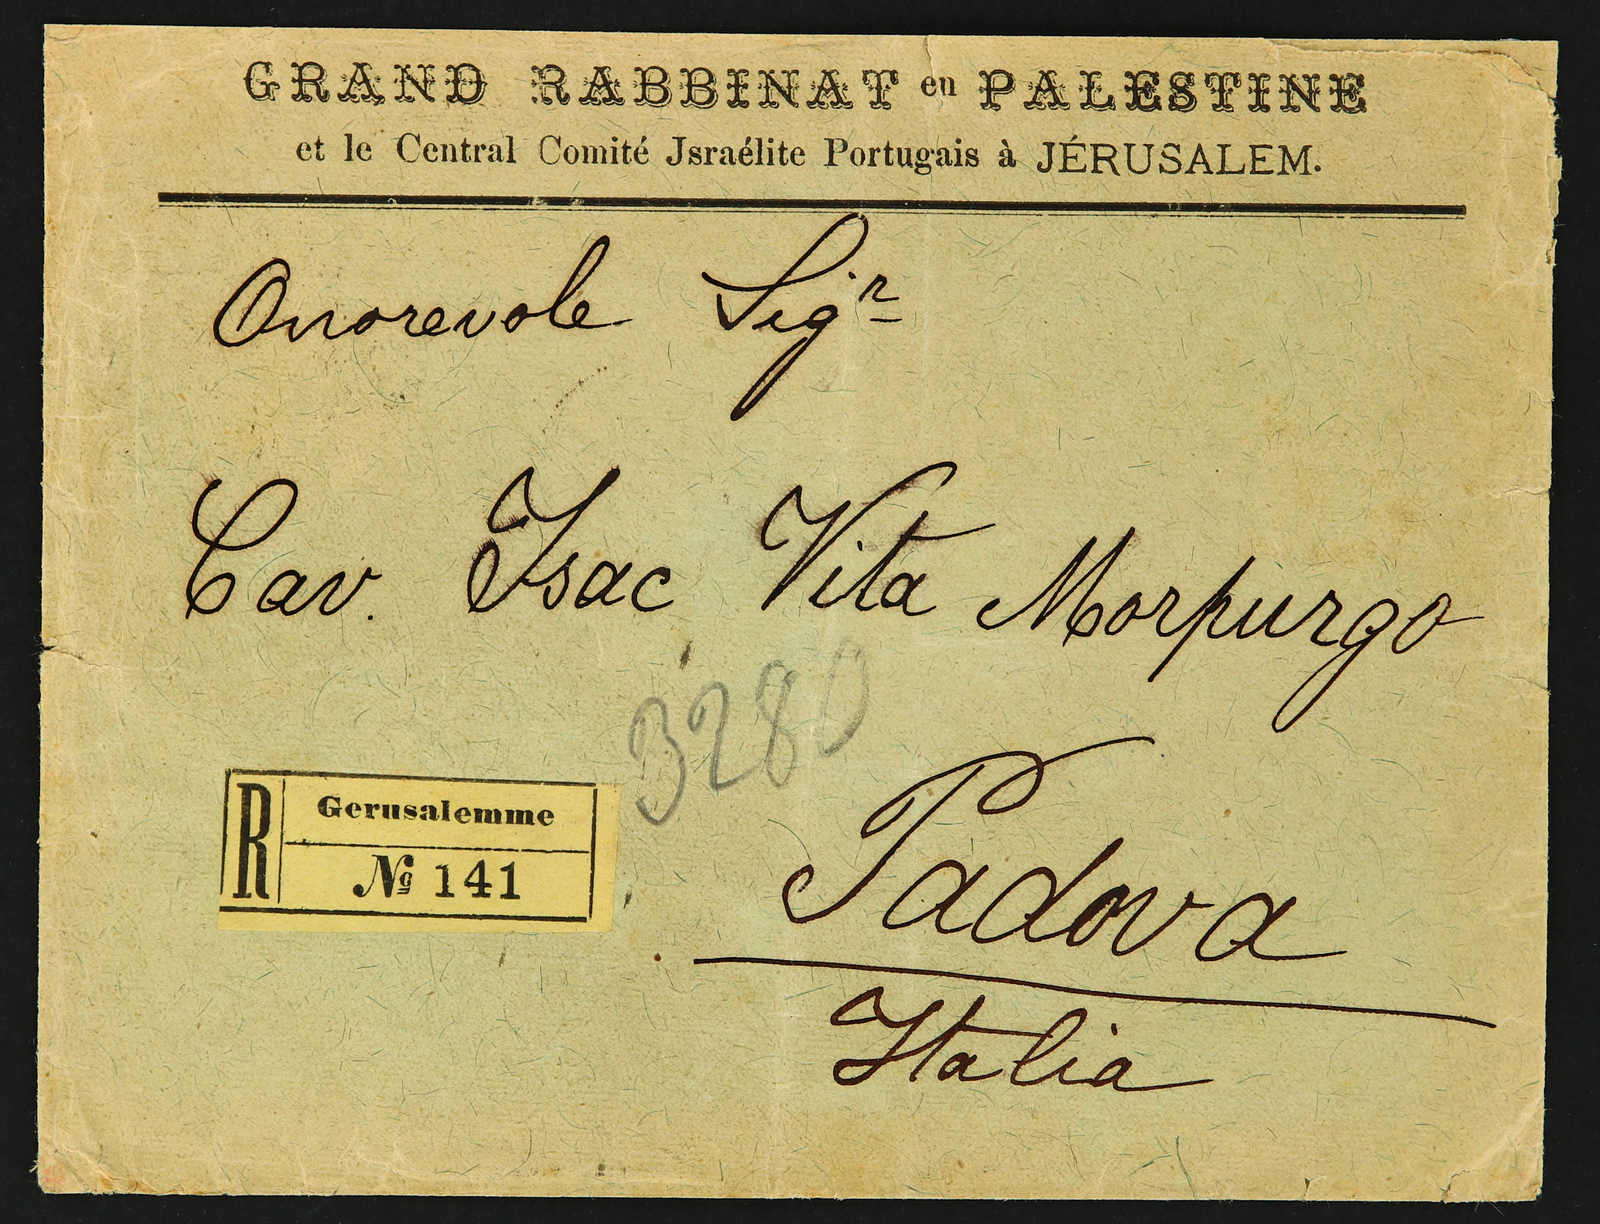 GRAND RABBINAT en PALESTINE
et le Central Comité Jsraélite Portugais à JÉRUSALEM.
Onorevole Sigr
Cav. Isac Vita Morpurgo
3280
R Gerusalemme
No 141
Padova
Italia